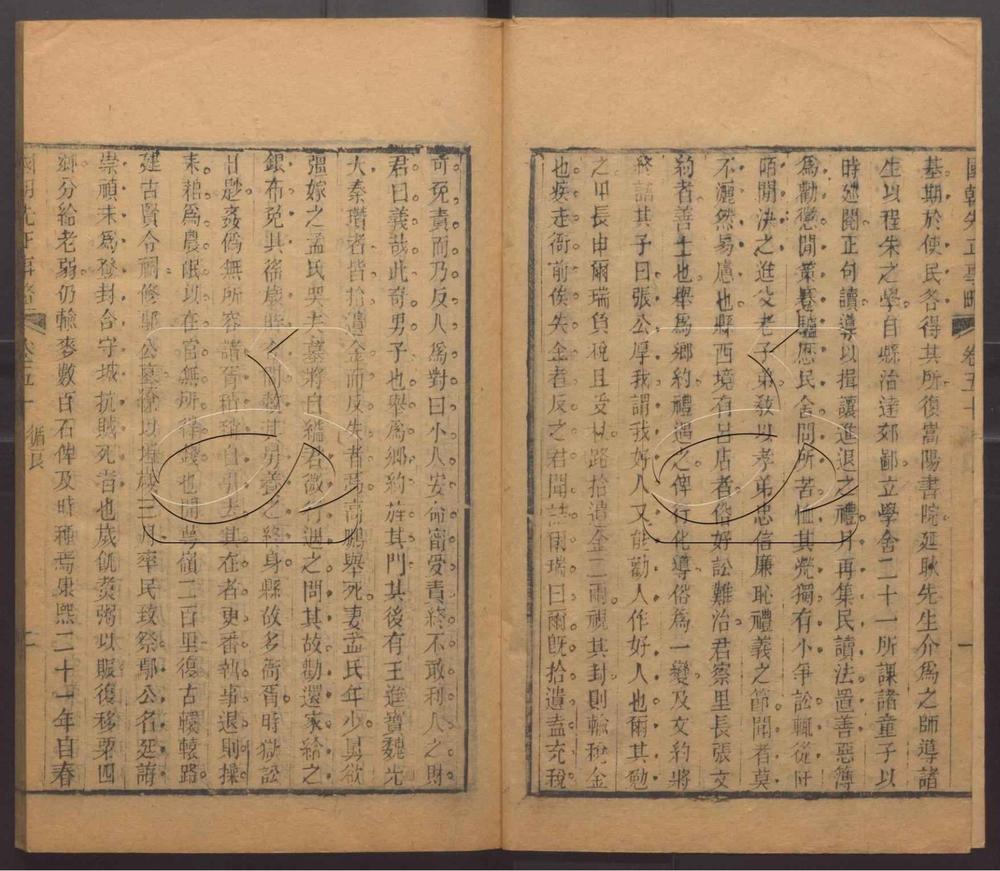 國朝先正事略 卷五十 一
基期於使民各得其所復嵩陽書院延耿先生介爲之師導諸
生以程朱之學自縣治達郊鄙立學舍二十一所課諸童子以
時延閱正句讀導以揖讓進退之禮月再集民讀法置善惡簿
爲勸懲閒策蹇驢歷民舍問所苦恤其煢獨有小爭訟輒從阡
陌閒決之進父老子弟敎以孝弟忠信廉恥禮義之節聞者莫
不灑然易慮也縣西境有呂店者俗好訟難治君察里長張文
約者善士也舉爲鄉約禮遇之俾行化導俗爲一變及文約將
終語其子曰張公厚我謂我好人又能勸人作好人也爾其勉
之甲長申爾瑞負稅且受杖路拾遺金二兩視其封則輸稅金
也疾走衙前俟失金者反之君聞詰爾瑞曰爾旣拾遺盍充稅
可免責而乃反人爲對曰小人安命甯受責終不敢利人之財
君曰義哉此奇男子也舉爲鄉約旌其門其後有王進寶魏光
大秦瓚者皆拾遺金而反失者高鵬舉死妻孟氏年少舅欲
彊嫁之孟氏哭夫墓將自縊君微行遇之問其故勸還家給之
銀布免其徭歲時存問暫其舅養之終身縣故多衙胥時獄訟
日尠姦僞無所容諸胥稍稍自引去其在者更番執事退則操
耒耜爲農氓以在官無所得錢也開 嶺二百里復古轘轅路
建古賢令祠修鄢公墓 以 三月率民致祭鄢公名延誨
崇禎末爲登封令守城抗賊死者也歲飢煑粥以賑復移粟四
鄉分給老弱仍輸麥數百石俾及時種焉康熙二十一年自春
國朝先正事略 卷五十一 循良 二